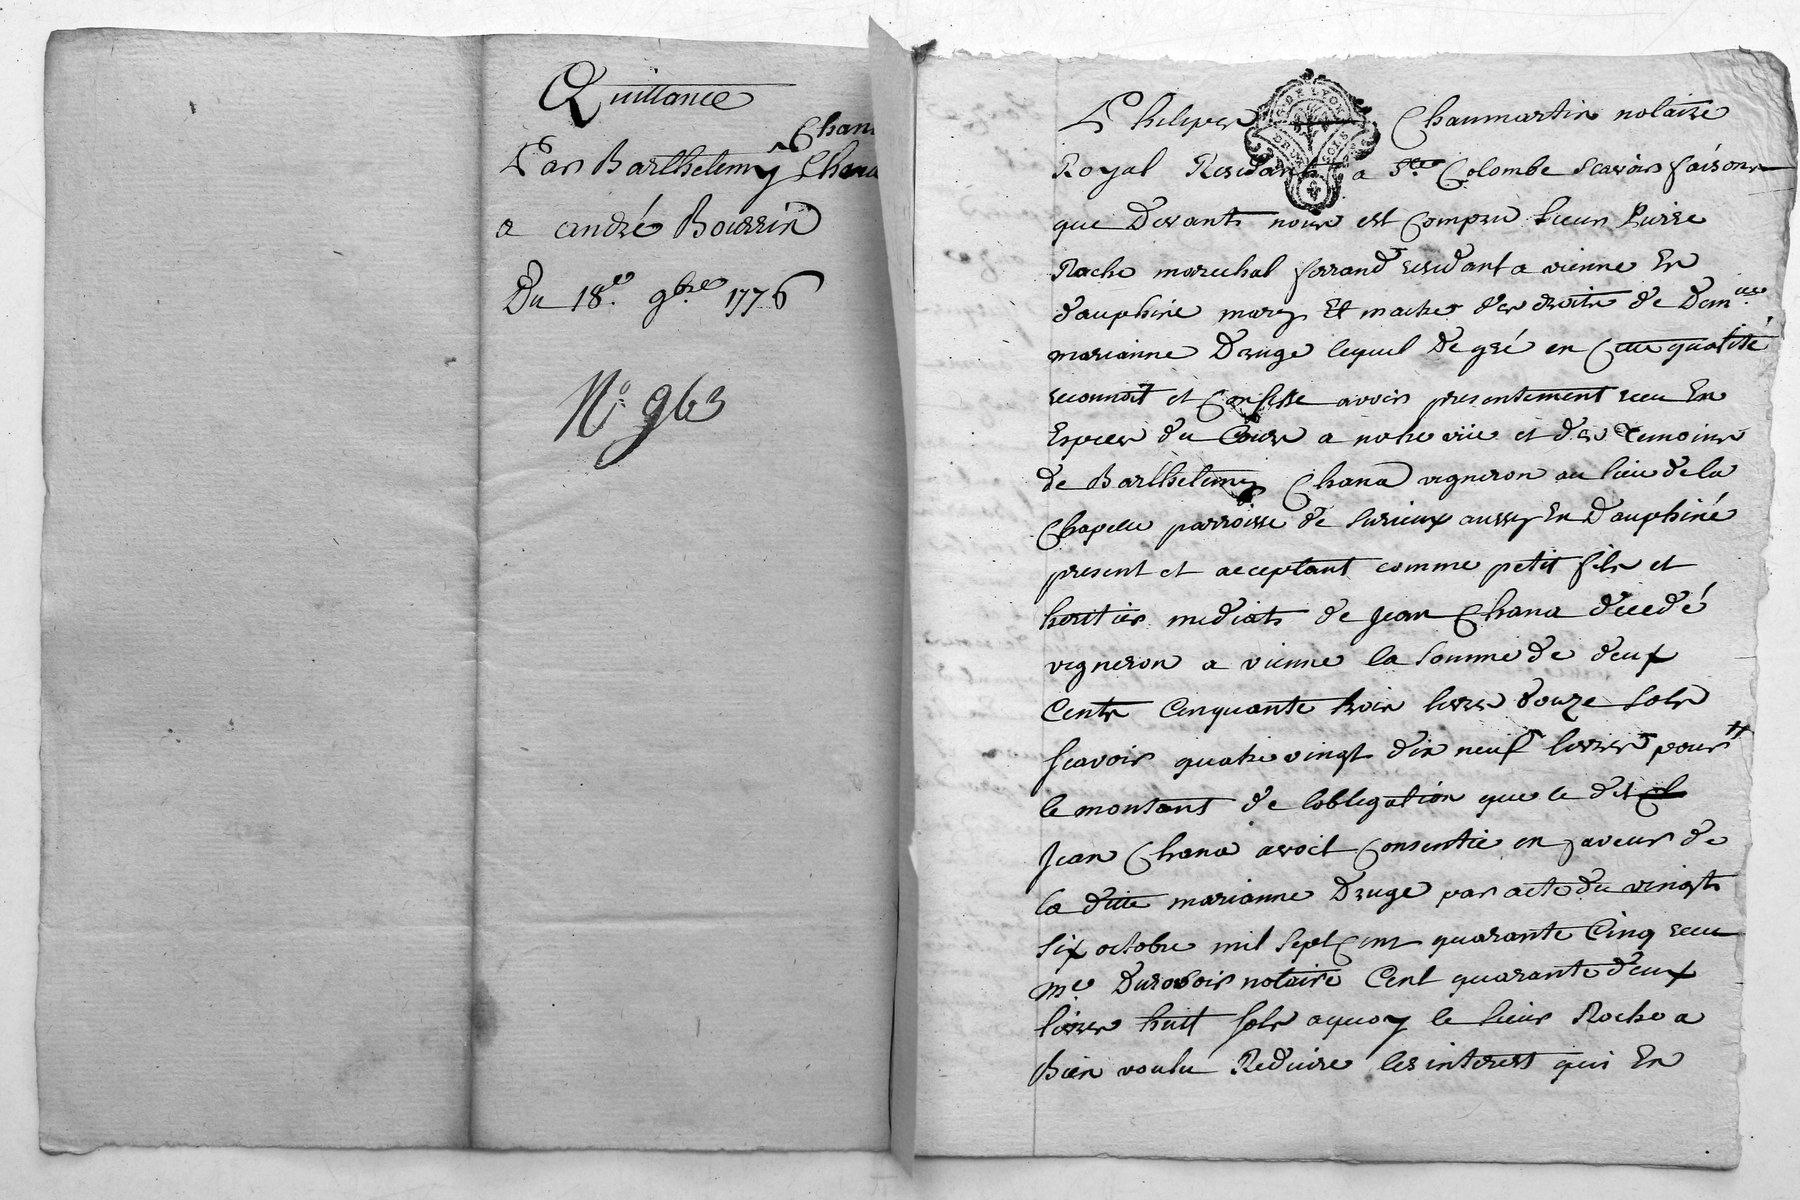 Quittance
Chan
Par Barthelemy Chana
a andré Boussin
Du 18e. 9bre 1776
No. 963
GEN. DE LYON
Philipes Chaumartin notaire
Royal Residant a Ste Colombe scavoir faisons
que Devants nous est Comparu sieur Pierre
Roche marechal ferrand residant a vienne En
dauphiné mary Et maitre des droits de Demlle
marianne Druge lequel De gré en Cette qualité
reconnoit et Confesse avoir presentement receu En
Especes du Cours a notre vüe et des temoins
de Barthelemy Chana vigneron au lieu de la
Chapelle parroisse de surieux aussy En Dauphiné
present et acceptant comme petit fils et
heritier mediats de Jean Chana décedé
vigneron a vienne la somme de deux
Cents Cinquante trois livres douze sols
scavoir quatre vingt dix neuf livres pour
le montant de lobligation que le dit
Jean Chana avoit Consentie en faveur de
la ditte marianne Druge par acte du vingt
six octobre mil sept Cent quarante Cinq receu
me Durosoir notaire Cent quarante deux
livres huit sols aquoy le sieur Roche a
Bien voulu Reduire les interest qui En